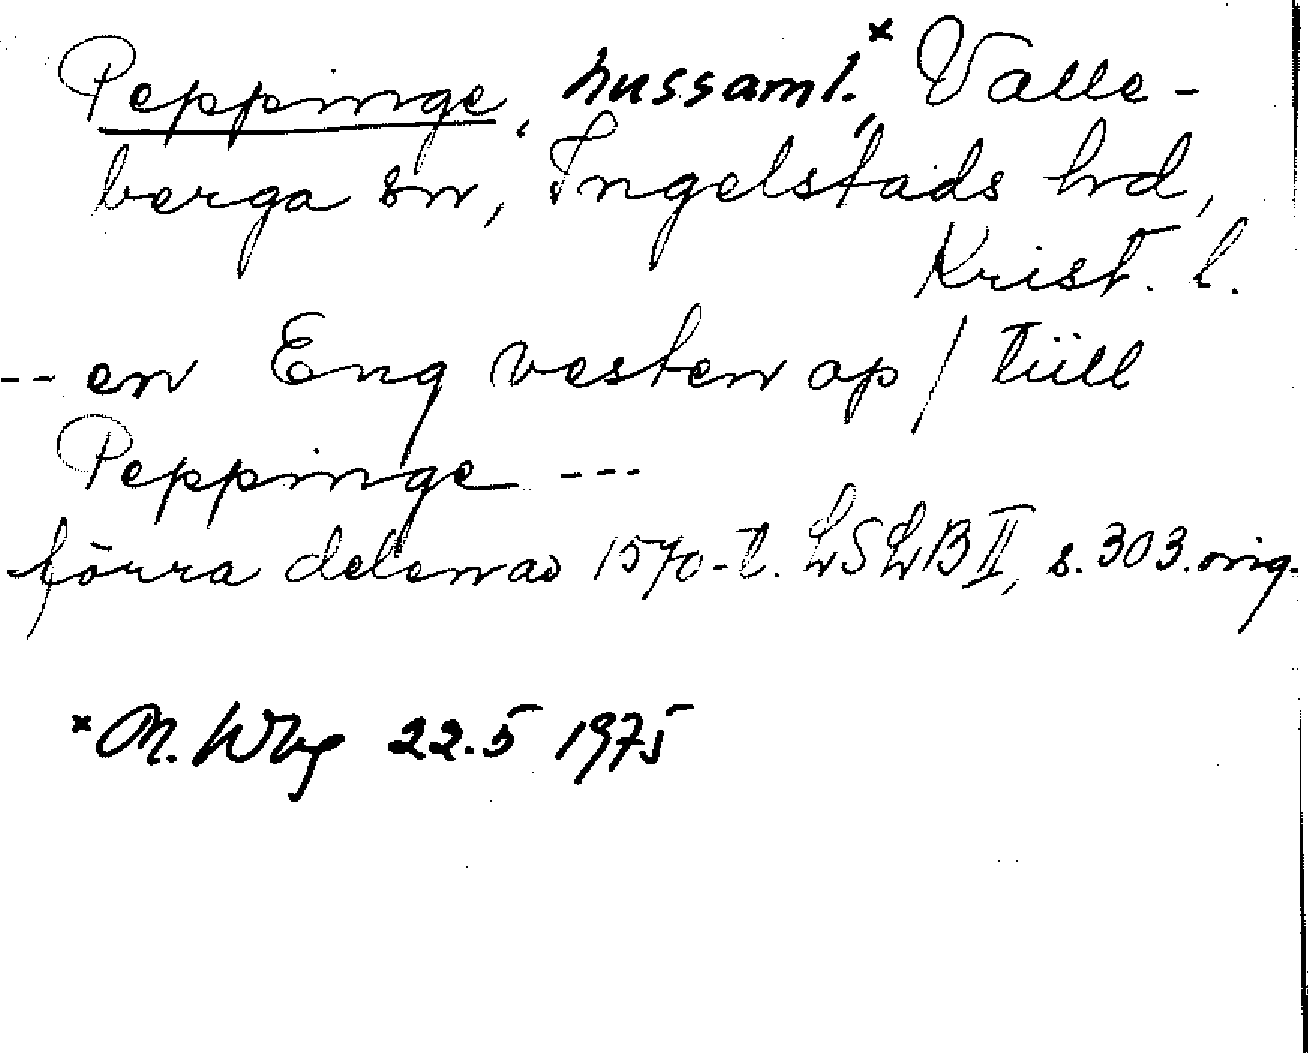 Peppinge, hussaml.x, Valle-
berga sn, Ingelstads hrd,
Krist. l.
-- en Eng vesten op / tiill
Peppinge ---
förra delen av 1570-t. LSLB II, s. 303. orig.
x M. Wbg 22.5 1975